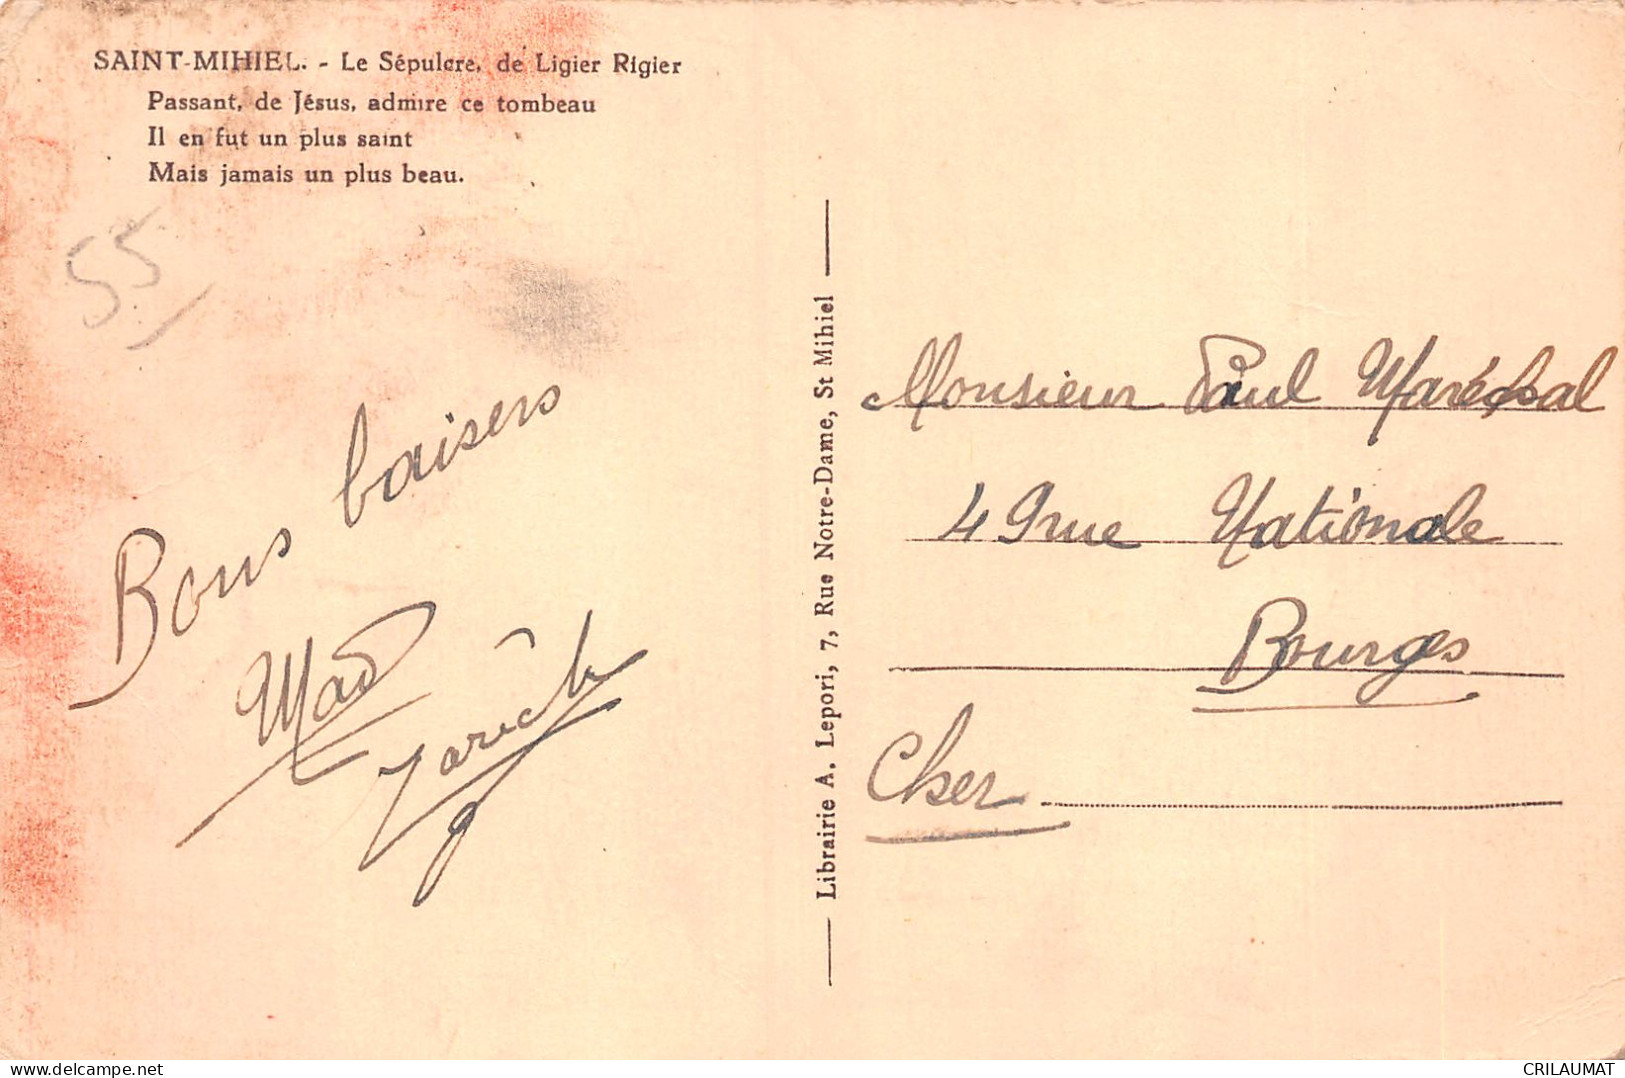 SAINT-MIHIEL. - Le Sépulcre, de Ligier Rigier
Passant, de Jésus, admire ce tombeau
Il en fut un plus saint
Mais jamais un plus beau.
55
Bons baisers
Mad
Librairie A. Lepori, 7, Rue Notre-Dame, St Mihiel
Monsieur Paul Maréchal
49 rue Nationale
Bourges
Cher
delcampe.net
CRILAUMAT